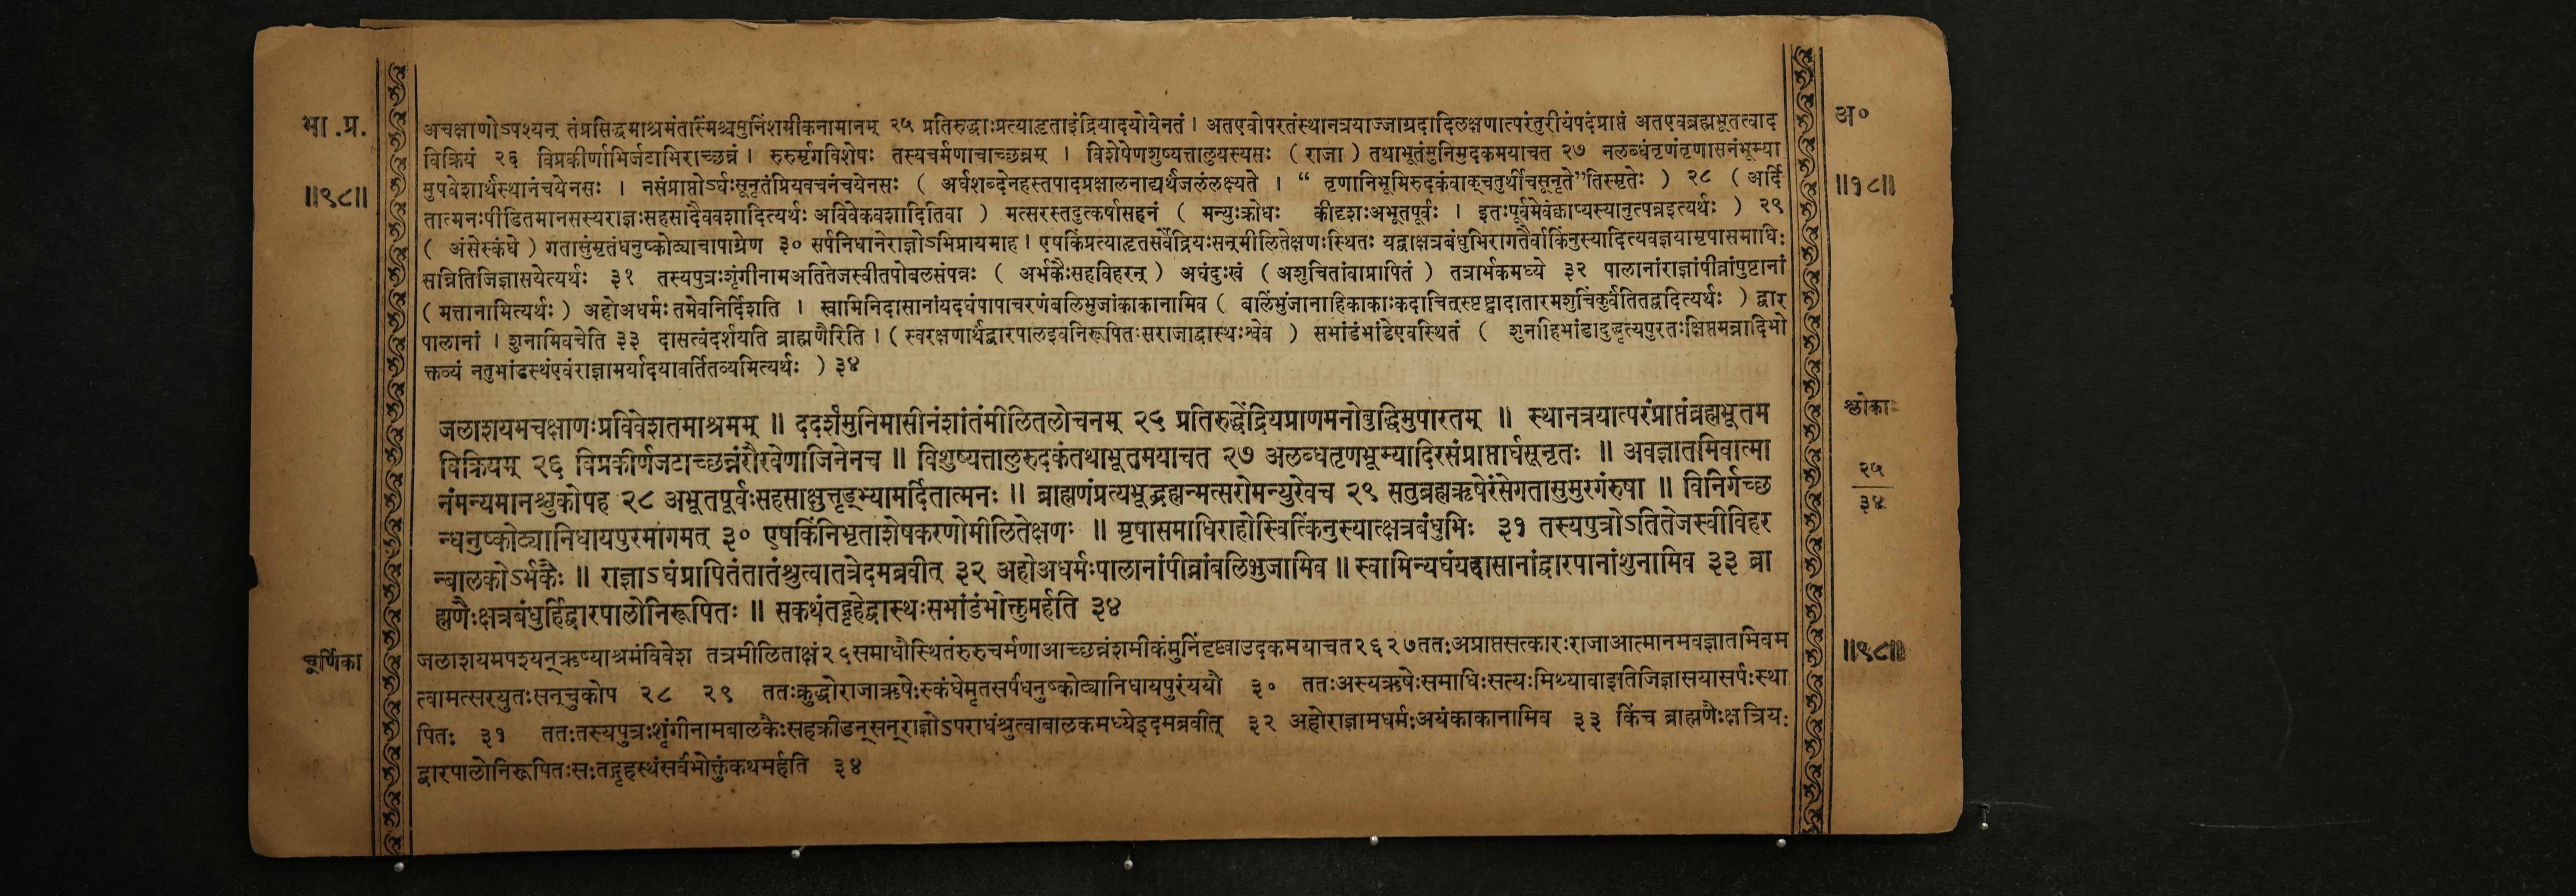 भा.प्र.
॥९८॥
अचक्षाणोऽपश्यन् तंप्रसिद्धमाश्रमंतास्मिंश्चमुनिंशमीकनामानम् २५ प्रतिरुद्धाःप्रत्याहृताइंद्रियादयोयेनतं । अतएवोपरतंस्थानत्रयाज्जाग्रदादिलक्षणात्परंतुरीयंपदंप्राप्तं अतएवब्रह्मभूतत्वाद
विक्रियं २६ विप्रकीर्णाभिर्जटाभिराच्छन्नं । रुरुर्मृगविशेषः तस्यचर्मणाचाच्छन्नम् । विशेषेणशुष्यत्तालुयस्यसः ( राजा ) तथाभूतंमुनिमुदकमयाचत २७ नलब्धंतृणंतृणासनंभूम्या
मुपवेशार्थस्थानंचयेनसः । नसंप्राप्तोऽर्घःसूनृतंप्रियवचनंचयेनसः ( अर्घशब्देनहस्तपादप्रक्षालनाद्यर्थजलंलक्ष्यते । “ तृणानिभूमिरुदकंवाक्चतुर्थीचसूनृते”तिस्मृतेः ) २८ ( अर्दि
तात्मनःपीडितमानसस्यराज्ञःसहसादैववशादित्यर्थः अविवेकवशादितिवा ) मत्सरस्तदुत्कर्षासहनं ( मन्युःक्रोधः कीदृशःअभूतपूर्वः । इतःपूर्वमेवंक्वाप्यस्यानुत्पन्नइत्यर्थः ) २९
( अंसेस्कंधे ) गतासुंमृतंधनुष्कोट्याचापाग्रेण ३० सर्पनिधानेराज्ञोऽभिप्रायमाह । एषकिंप्रत्याहृतसर्वेंद्रियःसन्मीलितेक्षणःस्थितः यद्वाक्षत्रबंधुभिरागतैर्वाकिंनुस्यादित्यवज्ञयामृषासमाधिः
सन्नितिजिज्ञासयेत्यर्थः ३१ तस्यपुत्रःशृंगीनामअतितेजस्वीतपोबलसंपन्नः ( अर्भकैःसहविहरन् ) अघंदुःखं ( अशुचितांवाप्रापितं ) तत्रार्भकमध्ये ३२ पालानांराज्ञांपीव्नांपुष्टानां
( मत्तानामित्यर्थः ) अहोअधर्मः तमेवनिर्दिशति । स्वामिनिदासानांयदघंपापाचरणंबलिभुजांकाकानामिव ( बलिंभुंजानाहिकाकाःकदाचित्स्पृष्ट्वादातारमशुचिंकुर्वंतितद्वदित्यर्थः ) द्वार
पालानां । शुनामिवचेति ३३ दासत्वंदर्शयति ब्राह्मणैरिति । ( स्वरक्षणार्थंद्वारपालइवनिरूपितःसराजाद्वास्थःश्वेव ) सभांडंभांडेएवस्थितं ( शुनाहिभांडादुद्धृत्यपुरतःक्षिप्तमन्नादिभो
क्तव्यं नतुभांडस्थंएवंराज्ञामर्यादयावर्तितव्यमित्यर्थः ) ३४
जलाशयमचक्षाणःप्रविवेशतमाश्रमम् ॥ ददर्शमुनिमासीनंशांतंमीलितलोचनम् २५ प्रतिरुद्धेंद्रियप्राणमनोबुद्धिमुपारतम् ॥ स्थानत्रयात्परंप्राप्तंब्रह्मभूतम
विक्रियम् २६ विप्रकीर्णजटाच्छन्नंरौरवेणाजिनेनच ॥ विशुष्यत्तालुरुदकंतथाभूतमयाचत २७ अलब्धतृणभूम्यादिरसंप्राप्तार्घसूनृतः ॥ अवज्ञातमिवात्मा
नंमन्यमानश्चुकोपह २८ अभूतपूर्वःसहसाक्षुत्तृड्भ्यामर्दितात्मनः ॥ ब्राह्मणंप्रत्यभूद्ब्रह्मन्मत्सरोमन्युरेवच २९ सतुब्रह्मऋषेरंसेगतासुमुरगंरुषा ॥ विनिर्गच्छ
न्धनुष्कोट्यानिधायपुरमागमत् ३० एषकिंनिभृताशेषकरणोमीलितेक्षणः ॥ मृषासमाधिराहोस्वित्किंनुस्यात्क्षत्रबंधुभिः ३१ तस्यपुत्रोऽतितेजस्वीविहर
न्बालकोऽर्भकैः ॥ राज्ञाऽघंप्रापितंतातंश्रुत्वातत्रेदमब्रवीत् ३२ अहोअधर्मःपालानांपीव्नांबलिभुजामिव ॥ स्वामिन्यघंयद्दासानांद्वारपानांशुनामिव ३३ ब्रा
ह्मणैःक्षत्रबंधुर्हिद्वारपालोनिरूपितः ॥ सकथंतद्गृहेद्वास्थःसभांडंभोक्तुमर्हति ३४
चूर्णिका
जलाशयमपश्यन्ऋष्याश्रमंविवेश तत्रमीलिताक्षं२५समाधौस्थितंरुरुचर्मणाआच्छन्नंशमीकंमुनिंदृष्ट्वाउदकमयाचत२६२७ततःअप्राप्तसत्कारःराजाआत्मानमवज्ञातमिवम
त्वामत्सरयुतःसन्चुकोप २८ २९ ततःक्रुद्धोराजाऋषेःस्कंधेमृतसर्पंधनुष्कोट्यानिधायपुरंययौ ३० ततःअस्यऋषेःसमाधिःसत्यःमिथ्यावाइतिजिज्ञासयासर्पःस्था
पितः ३१ ततःतस्यपुत्रःशृंगीनामबालकैःसहक्रीडन्सन्राज्ञोऽपराधंश्रुत्वाबालकमध्येइदमब्रवीत् ३२ अहोराज्ञामधर्मःअयंकाकानामिव ३३ किंच ब्राह्मणैःक्षत्रियः
द्वारपालोनिरूपितःसःतद्गृहस्थंसर्वंभोक्तुंकथमर्हति ३४
अ०
॥१८॥
श्लोकाः
२५
३४
॥९८॥